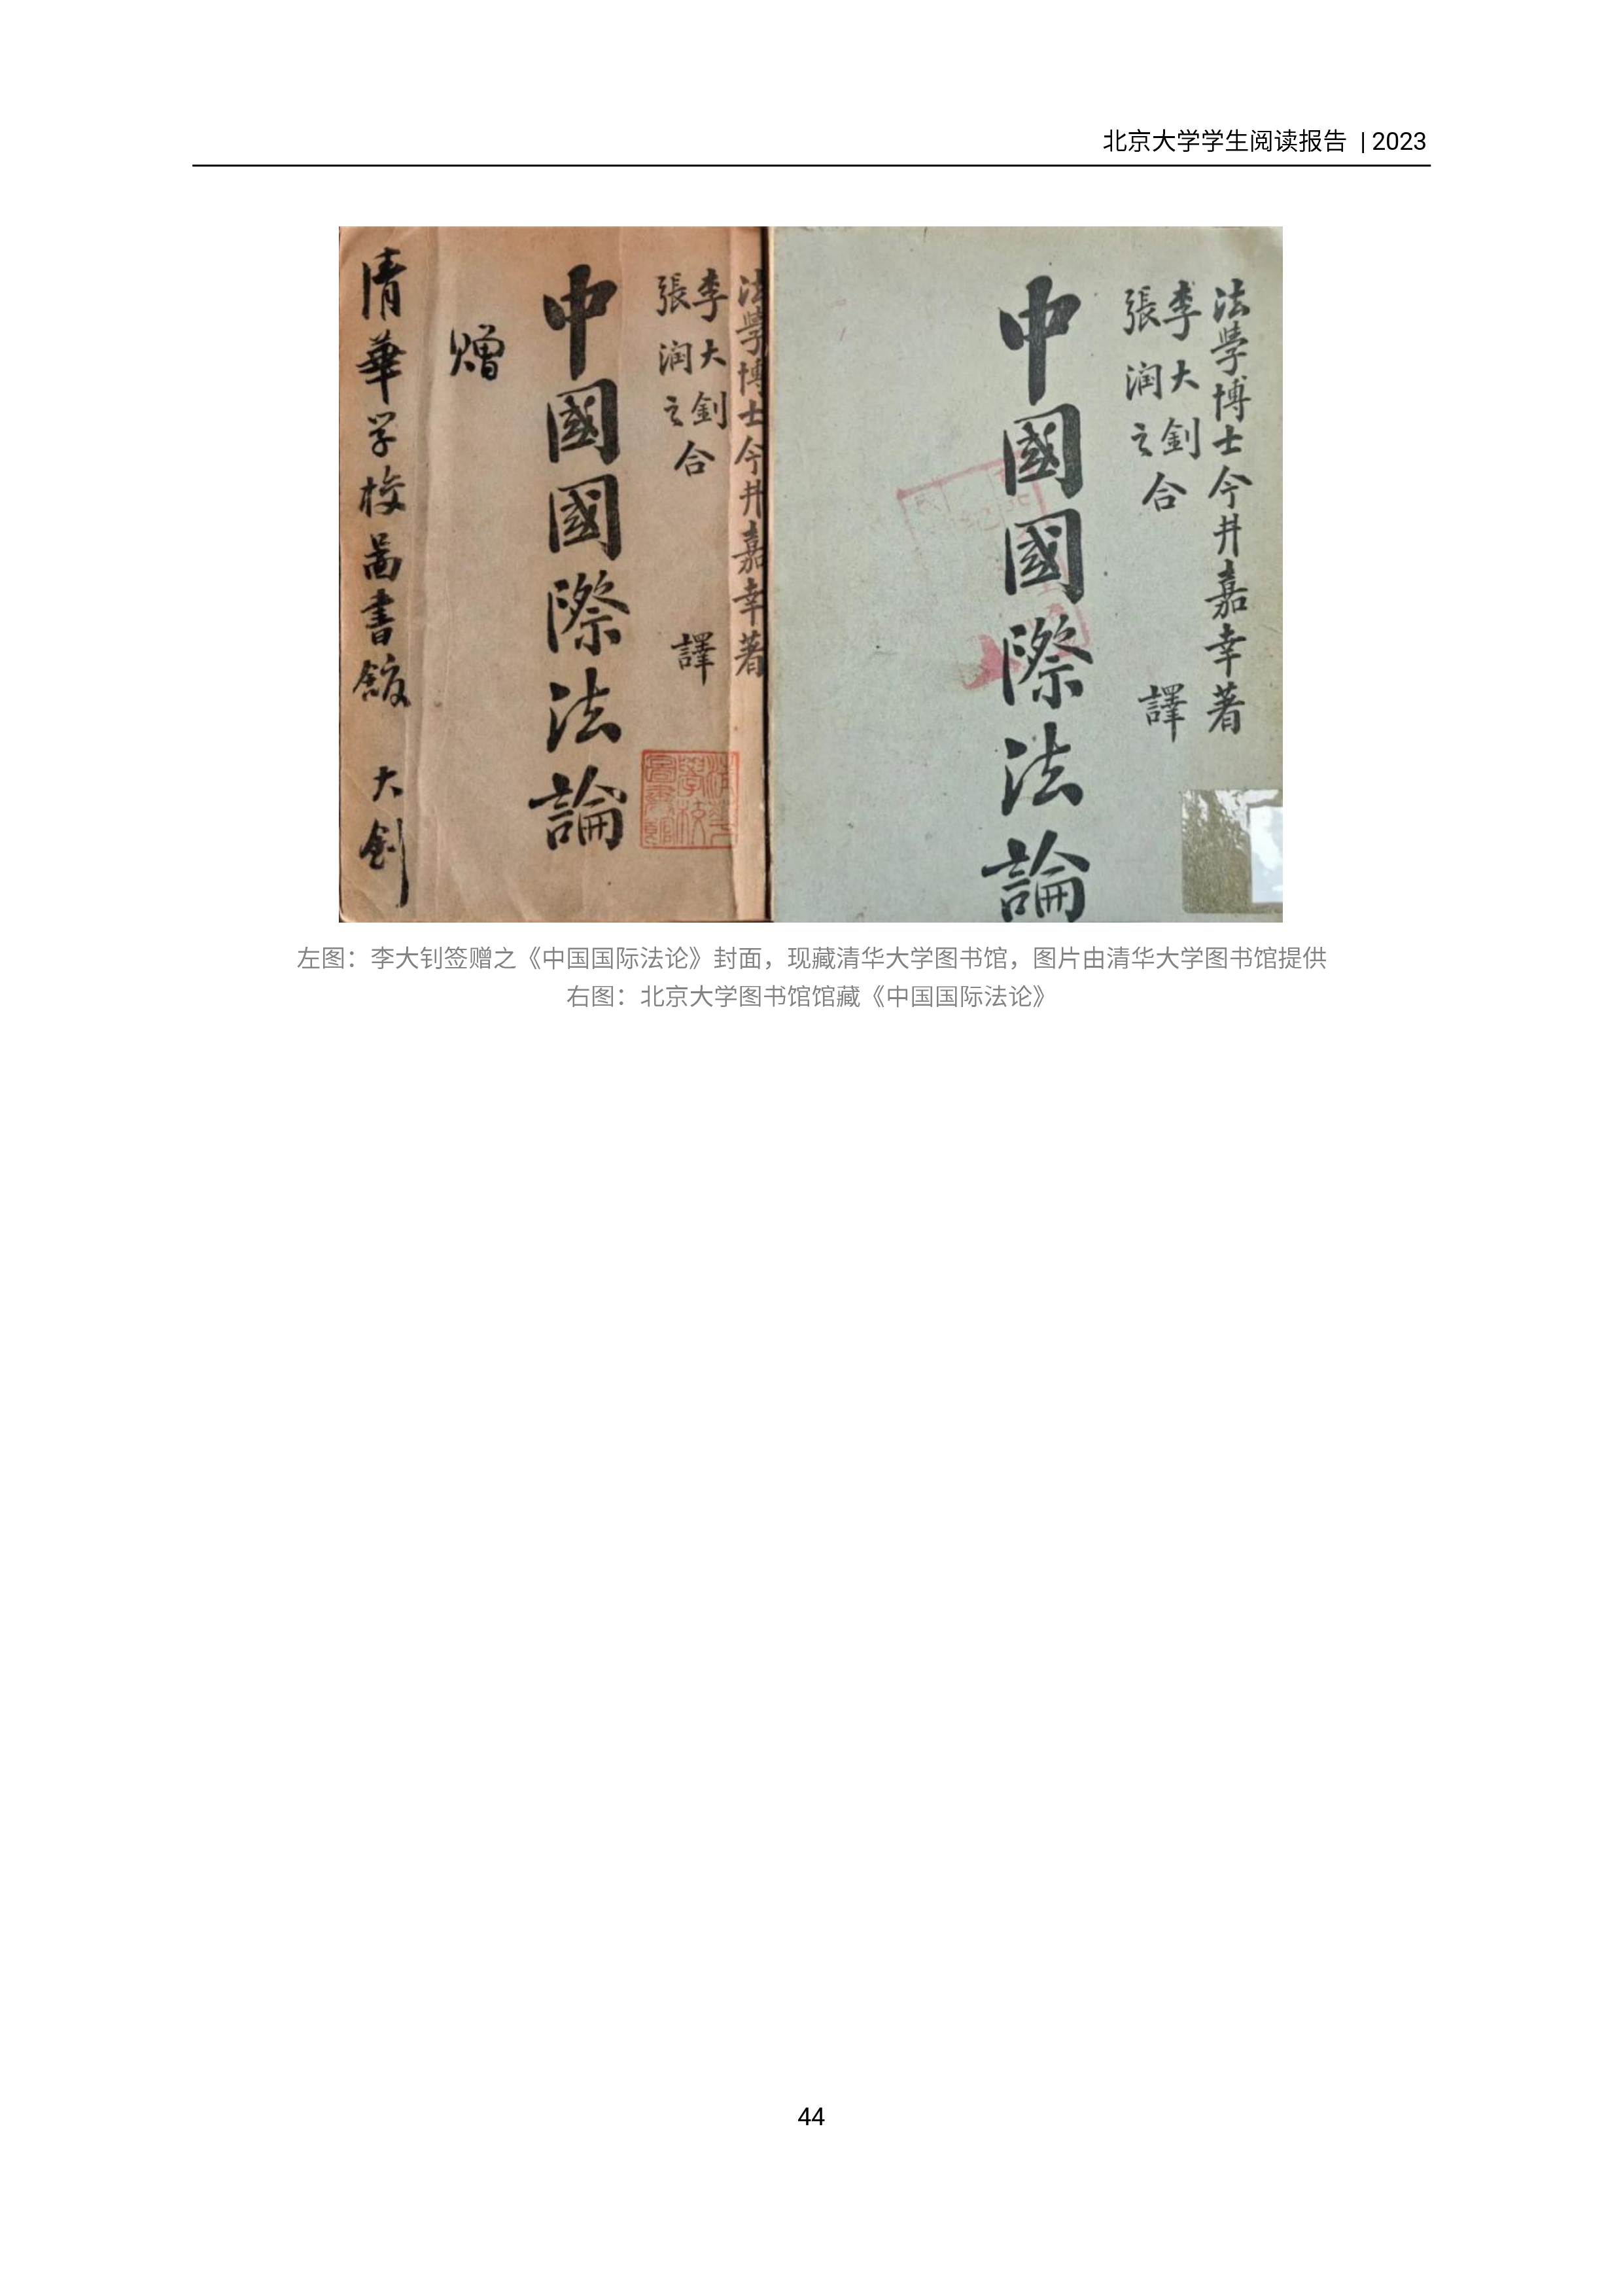 北京大学学生阅读报告 | 2023
法學博士今井嘉幸著
李大釗
張润之
合譯
中國國際法論
贈
清華学校啚書舘 大釗
清華學校圖書館
法學博士今井嘉幸著
李大釗
張润之
合譯
中國國際法論
左图：李大钊签赠之《中国国际法论》封面，现藏清华大学图书馆，图片由清华大学图书馆提供
右图：北京大学图书馆馆藏《中国国际法论》
44